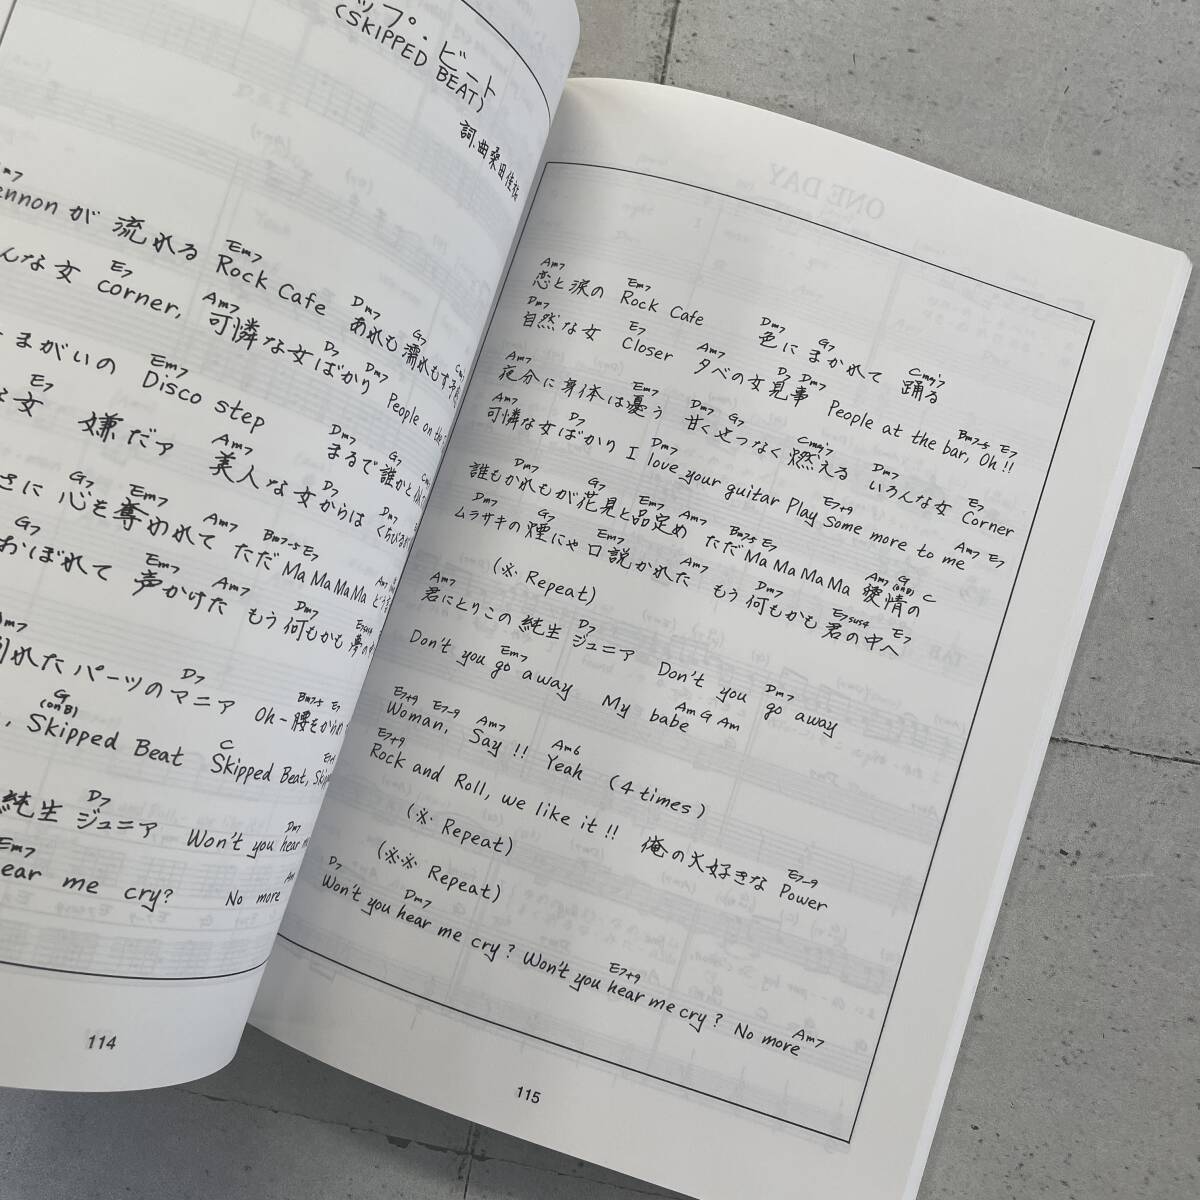 ップ・ビート
(SKIPPED BEAT)
詞.曲 桑田佳祐
ennonが 流れる Rock Cafe あれも濡れもす
んな女 corner, 可憐な女ばかり People on the
まがいの Disco step
女 嫌だァ まるで誰かと
美人な女からは くちびる
さに 心を奪われて ただ Ma Ma Ma Ma
おぼれて 声かけた もう何もかも 夢の
れたパーツのマニア Oh-腰を
, Skipped Beat Skipped Beat,
純生 ジュニア Won't you hear
ear me cry? No more
114
ONE DAY
Am7 Em7 Dm7 G7 Cmaj7
恋と涙の Rock Cafe 色に まかれて 踊る
Dm7 E7 Am7 D7 Dm7 Bm7-5 E7
自然な女 Closer 夕べの女見事 People at the bar, Oh!!
Am7 Em7 Dm7 G7 Cmaj7 Dm7 E7
夜分に身体は憂う 甘くせつなく燃える いろんな女 Corner
Am7 D7 Dm7 E7+9 Am7 E7
可憐な女ばかり I love your guitar Play Some more to me
Dm7 G7 Em7 Am7 Bm7-5 E7 Am7 G (onB) C
誰もかれもが花見と品定め ただ Ma Ma Ma Ma 痩情の
Dm7 G7 Em7 Am7 Dm7 E7sus4 E7
ムラサキの煙にや口説かれた もう 何もかも 君の中へ
(※ Repeat)
Am7 D7 Dm7
君にとりこの 純生 ジュニア Don't you go away
Em7 Am G Am
Don't you go away My babe
E7+9 E7-9 Am7 Am6
Woman, Say!! Yeah (4 times)
E7+9 E7-9
Rock and Roll, we like it!! 俺の大好きな Power
(※ Repeat)
(※※ Repeat)
D7 Dm7 E7+9 Am7
Won't you hear me cry? Won't you hear me cry? No more
115